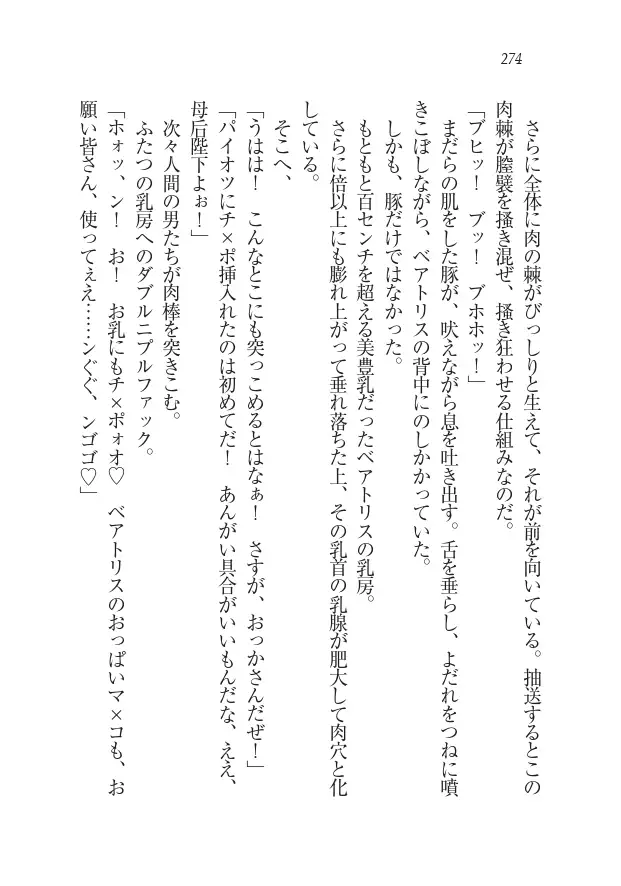 274
　さらに全体に肉の棘がびっしりと生えて、それが前を向いている。抽送するとこの
肉棘が膣襞を掻き混ぜ、掻き狂わせる仕組みなのだ。
「ブヒッ！　ブッ！　ブホホッ！」
　まだらの肌をした豚が、吠えながら息を吐き出す。舌を垂らし、よだれをつねに噴
きこぼしながら、ベアトリスの背中にのしかかっていた。
　しかも、豚だけではなかった。
　もともと百センチを超える美豊乳だったベアトリスの乳房。
　さらに倍以上にも膨れ上がって垂れ落ちた上、その乳首の乳腺が肥大して肉穴と化
している。
　そこへ、
「うはは！　こんなとこにも突っこめるとはなぁ！　さすが、おっかさんだぜ！」
「パイオツにチ×ポ挿入れたのは初めてだ！　あんがい具合がいいもんだな、ええ、
母后陛下よぉ！」
　次々人間の男たちが肉棒を突きこむ。
　ふたつの乳房へのダブルニプルファック。
「ホォッ、ン！　お！　お乳にもチ×ポォオ♡　ベアトリスのおっぱいマ×コも、お
願い皆さん、使ってぇえ……ンぐぐ、ンゴゴ♡」